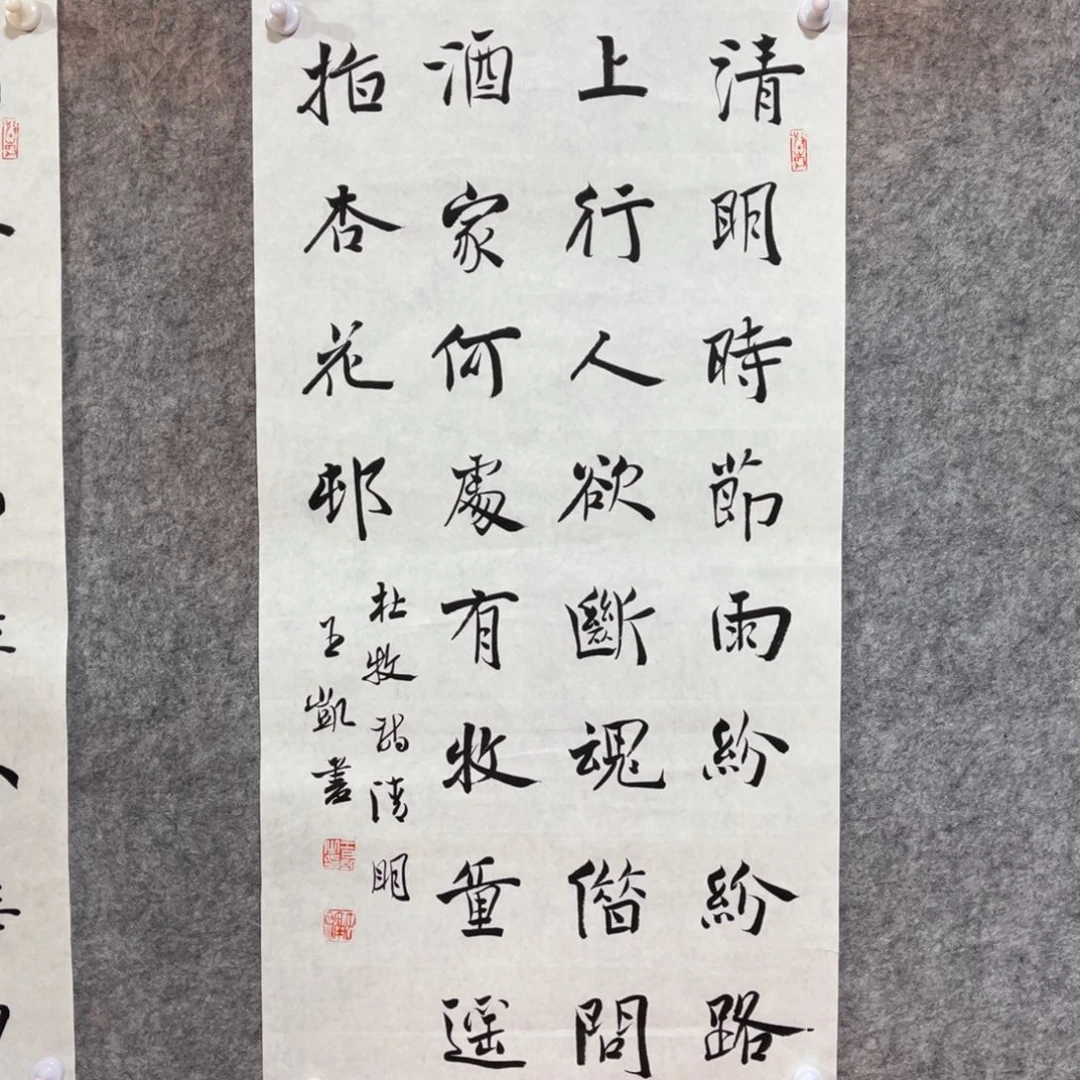 清明時節雨紛紛路
上行人欲斷魂偕問
酒家何處有牧童遥
指杏花邨
杜牧詩清明
王凱書